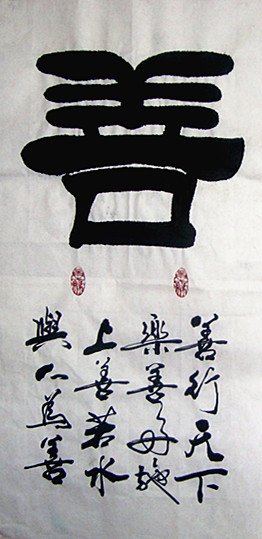 善
善行天下
樂善好施
上善若水
與人為善